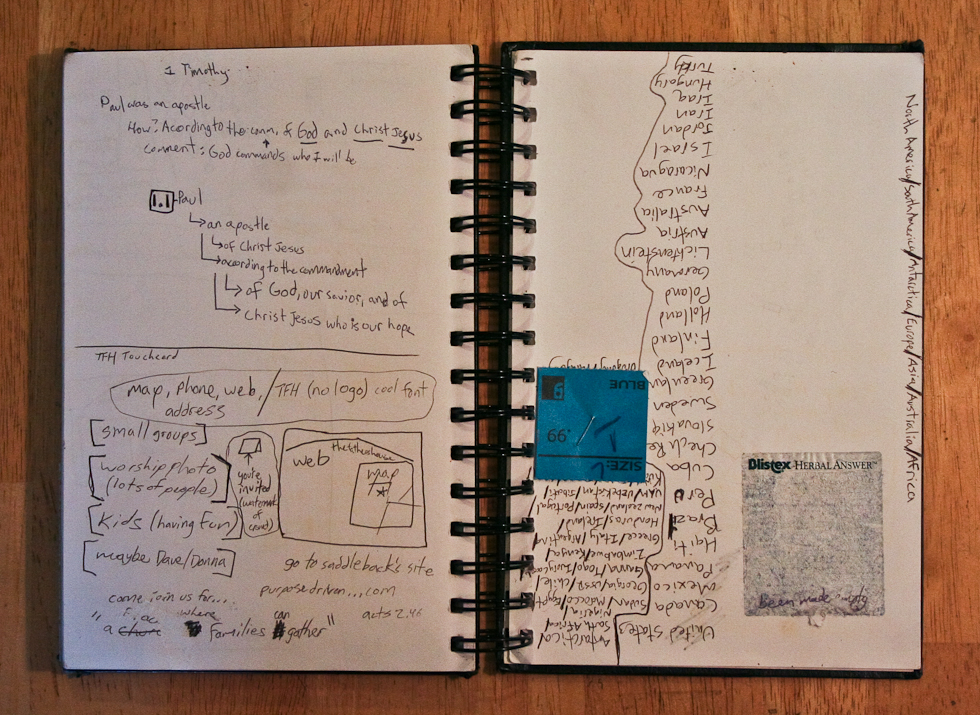 1 Timothy
Paul was an apostle
How? According to the comm. of God and Christ Jesus
comment: God commands who I will be
1.1 Paul
an apostle
of Christ Jesus
according to the commandment
of God, our savior, and of
Christ Jesus who is our hope
TFH Touchcard
map, phone, web, / TFH (no logo) cool font
address
[small groups]
[worship photo
(lots of people)]
[Kids (having fun)]
[maybe Dave/Donna]
you're
invited
web
map
go to saddleback's site
purposedriven....com
come join us for....
acts 2.46
"a
where
Families
can
gather"
North America/South America/Antarctica/Europe/Asia/Australia/Africa
United States
Canada
Mexico
Panama
Haiti
Brazil
Peru
Cuba
Slovakia
Sweden
Iceland
Finland
Holland
Poland
Germany
Lichtenstein
Austria
Australia
France
Nicaragua
Israel
Jordan
Iran
Iraq
Hungary
Turkey
Antarctica/
South Africa/
Nigeria
Sudan/Morocco/Egypt
Georgia/USSR/Chile
Zimbabwe/Kenya
Greece/Italy/Argentina
Honduras/Ireland
New Zealand/Spain/Portugal
BLUE
.99
SIZE
Blistex HERBAL ANSWER™
Been made